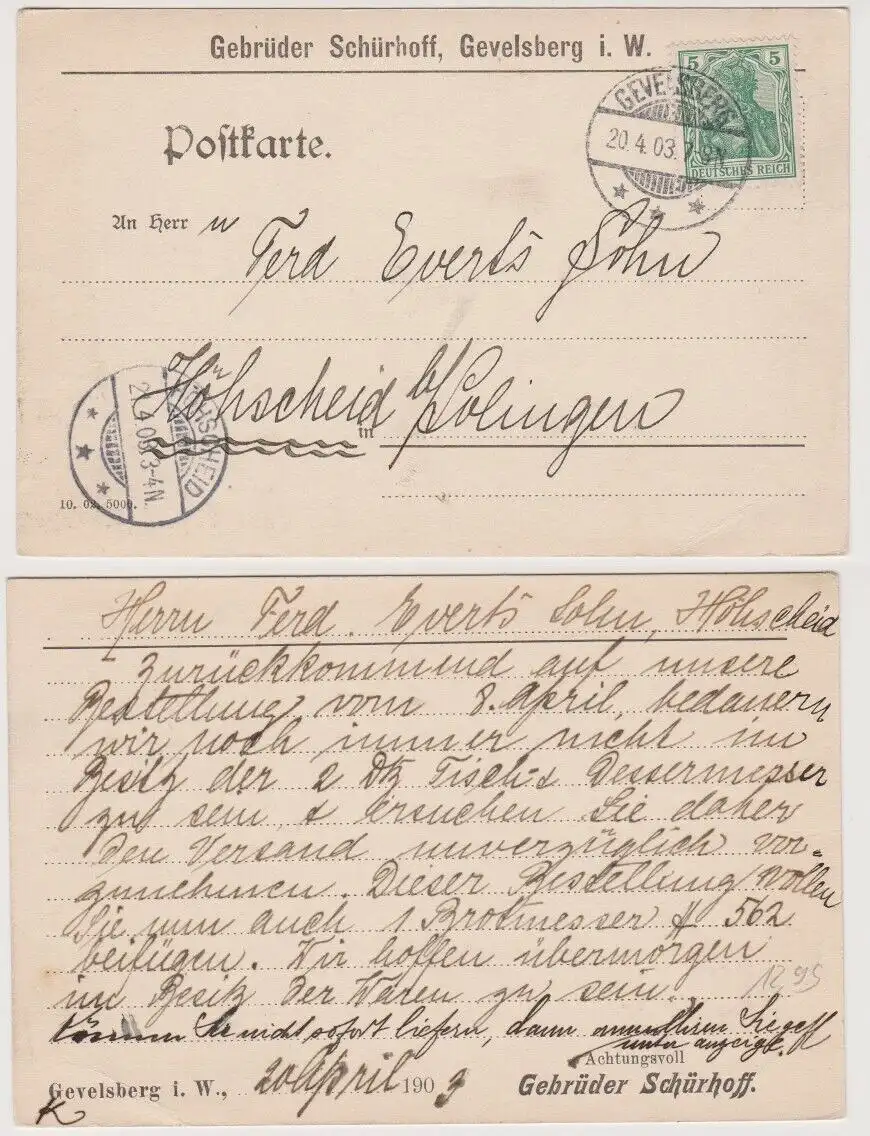 Gebrüder Schürhoff, Gevelsberg i. W.
5 5
DEUTSCHES REICH
GEVELSBERG
20.4.03.7-8N
Postkarte.
An Herrn
Ferd Everts Sohn
Höhscheid b/Solingen
in
HÖHSCHEID
21.4.03.3-4N.
10. 02. 5000.
Herrn Ferd. Everts Sohn, Höhscheid
Zurückkommend auf unsere
Bestellung vom 8. April, bedauern
wir noch immer nicht im
Besitz der 2 Dtz Tisch- & Dessermesser
zu sein, & ersuchen Sie daher
den Versand unverzüglich vor-
zunehmen. Dieser Bestellung wollen
Sie nun auch 1 Brotmesser # 562
beifügen. Wir hoffen übermorgen
im Besitz der Waren zu sein.
12,95
können Sie nicht sofort liefern, dann annulliren Sie gefl
unter anzeige.
Achtungsvoll
Gevelsberg i. W., 20 April 1903
Gebrüder Schürhoff.
K